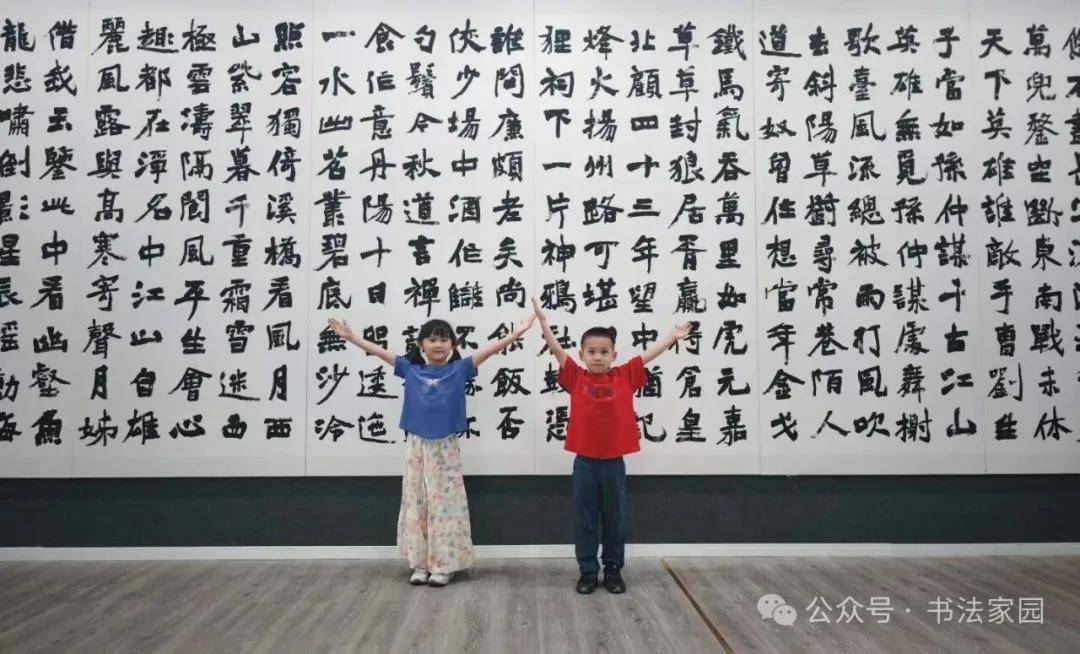 萬兜鍪坐斷東南戰未休
天下英雄誰敵手曹劉生
子當如孫仲謀千古江山
英雄無覓孫仲謀處舞榭
歌臺風流總被雨打風吹
去斜陽草樹尋常巷陌人
道寄奴曾住想當年金戈
鐵馬氣吞萬里如虎元嘉
草草封狼居胥贏得倉皇
北顧四十三年望中猶記
烽火揚州路可堪
狸祠下一片神鴉社鼓憑
誰問廉頗老矣尚能飯否
俠少場中酒作讎不
勺鬢今秋道言禪
食作意丹陽十日
一水幽苔叢碧底無沙冷
照容獨倚溪橋看風月西
山紫翠暮千重霜雪迷西
極雲濤隔閬風平生會心
趣都在浮名中江山自雄
麗風露與高寒寄聲月姊
借我玉鑒此中看幽壑魚
龍悲嘯倒影星辰搖動海
公众号·书法家园